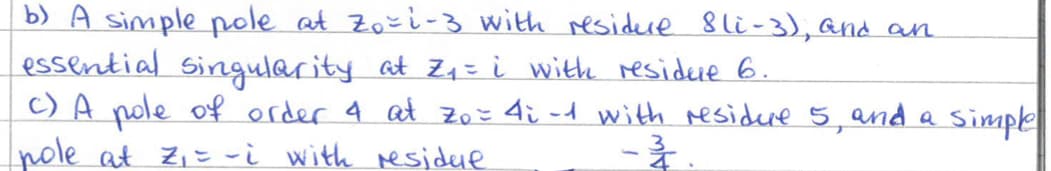 b) A simple pole at z₀=i-3 with residue 8(i-3), and an
essential singularity at z₁=i with residue 6.
c) A pole of order 4 at z₀=4i-1 with residue 5, and a simple
pole at z₁=-i with residue -3/4.